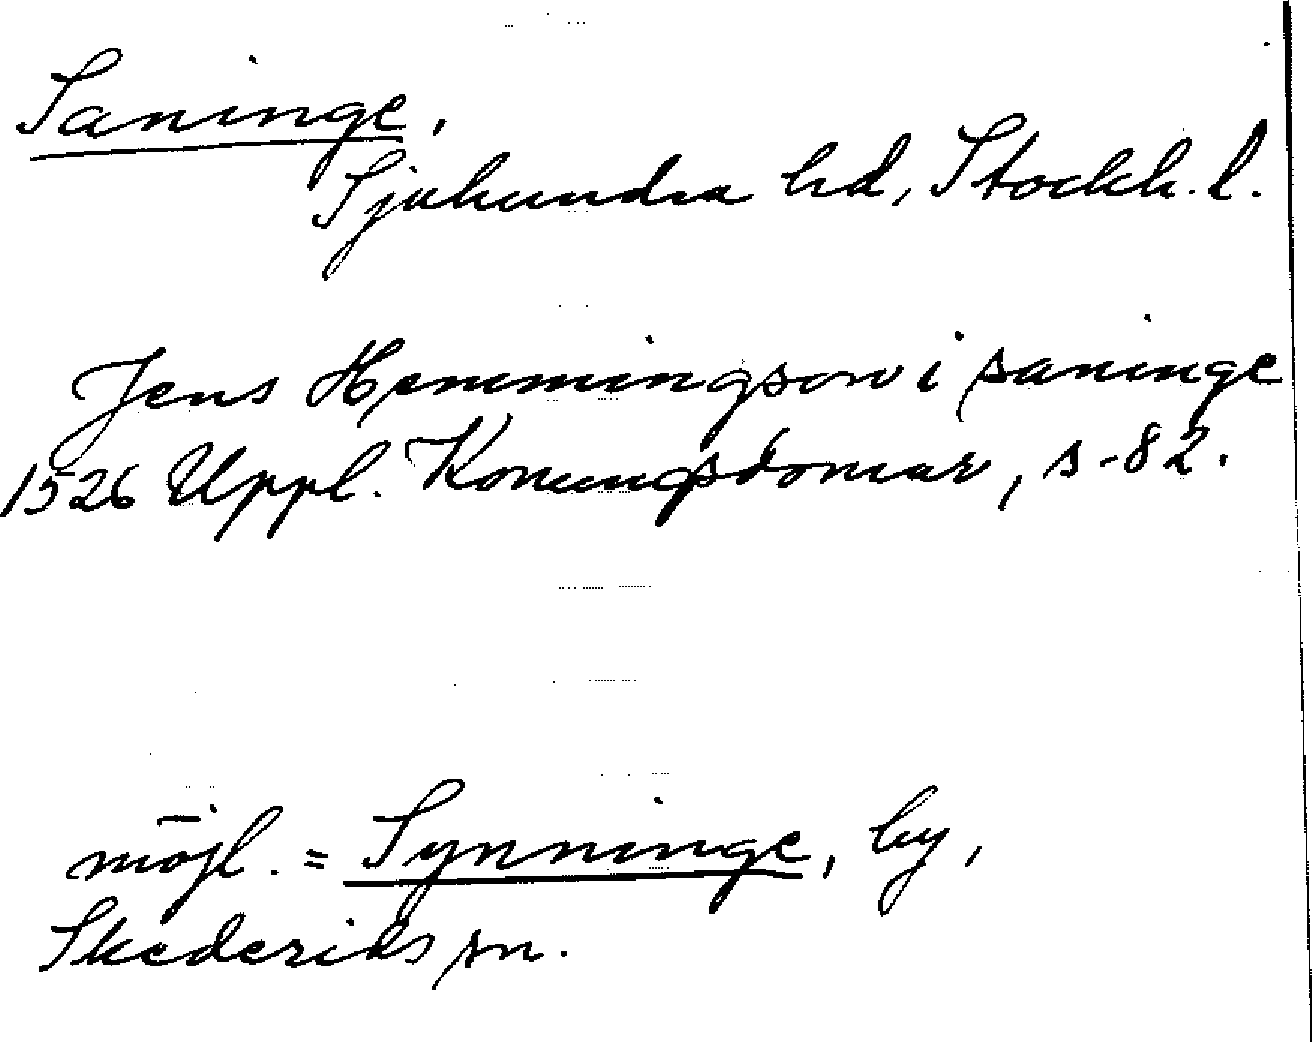 Saninge,
Sjuhundra hd, Stockh. l.
Jens Hemmingson i saninge
1526 Uppl. Konungsdomar, s. 82.
möjl. = Synninge, by,
Skederids sn.